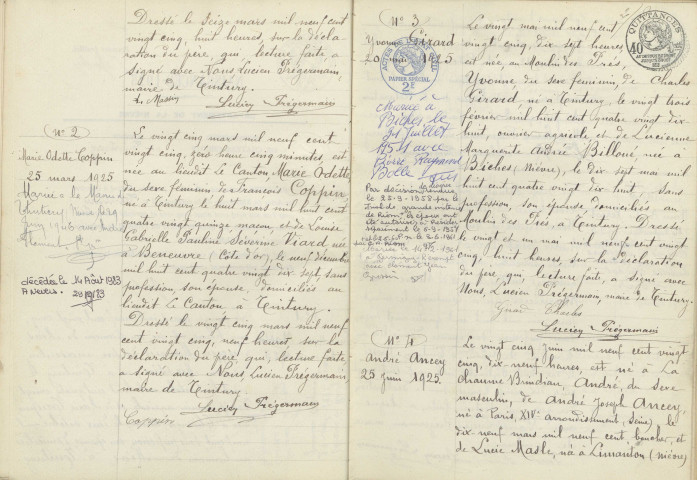 Dressé le seize mars mil neuf cent
vingt cinq, huit heures, sur la décla-
ration du père, qui, lecture faite, a
signé avec Nous, Lucien Frégermain,
maire de Tintury.
Lucien Frégermain
N° 2
Marie Odette Coppin
25 mars 1925
décédée le 14 Août 1983
A Nevers.
Le vingt cinq mars mil neuf cent
vingt cinq, zéro heure cinq minutes, est
née au lieudit Le Canton Marie Odette
du sexe féminin de François Coppin
né à Tintury le huit mars mil huit cent
quatre vingt quinze, maçon, et de Louise
Gabrielle Pauline Séverine Viard née
à Beneuvre (Côte d'or), le neuf décembre
mil huit cent quatre vingt dix sept, sans
profession, son épouse, domiciliés au
lieudit Le Canton à Tintury.
Dressé le vingt cinq mars mil neuf
cent vingt cinq, neuf heures, sur la
déclaration du père, qui, lecture faite
a signé avec Nous, Lucien Frégermain
maire de Tintury.
Lucien Frégermain
Coppin
N° 3
Yvonne Girard
20 mai 1925
PAPIER SPÉCIAL
2F
Mariée à
Biches, le
21 Juillet
1951 avec
Pierre
Par décision rendue
QUITTANCES
40
Le vingt mai mil neuf cent
vingt cinq, dix sept heures,
est née au Moulin des Prés,
Yvonne du sexe féminin, de Charles
Girard né à Tintury, le vingt trois
février mil huit cent quatre vingt dix-
huit, ouvrier agricole et de Lucienne
Marguerite Andrée Billoué, née à
Biches (Nièvre), le dix sept mai mil
huit cent quatre vingt dix huit, sans
profession, son épouse, domiciliés au
Moulin des Prés, à Tintury. Dressé
le vingt et un mai mil neuf cent vingt
cinq, huit heures, sur la déclaration
du père, qui, lecture faite, a signé avec
Nous, Lucien Frégermain, maire de Tintury.
Lucien Frégermain
N° 4
André Ancey
25 juin 1925.
Le vingt cinq juin mil neuf cent vingt
cinq, dix-neuf heures, est né à La
André, du sexe
masculin, de André Joseph Ancey,
né à Paris, XIVe arrondissement, (Seine) le
dix-neuf mars mil neuf cent, boucher, et
de Lucie Masle, née à Limanton (Nièvre)